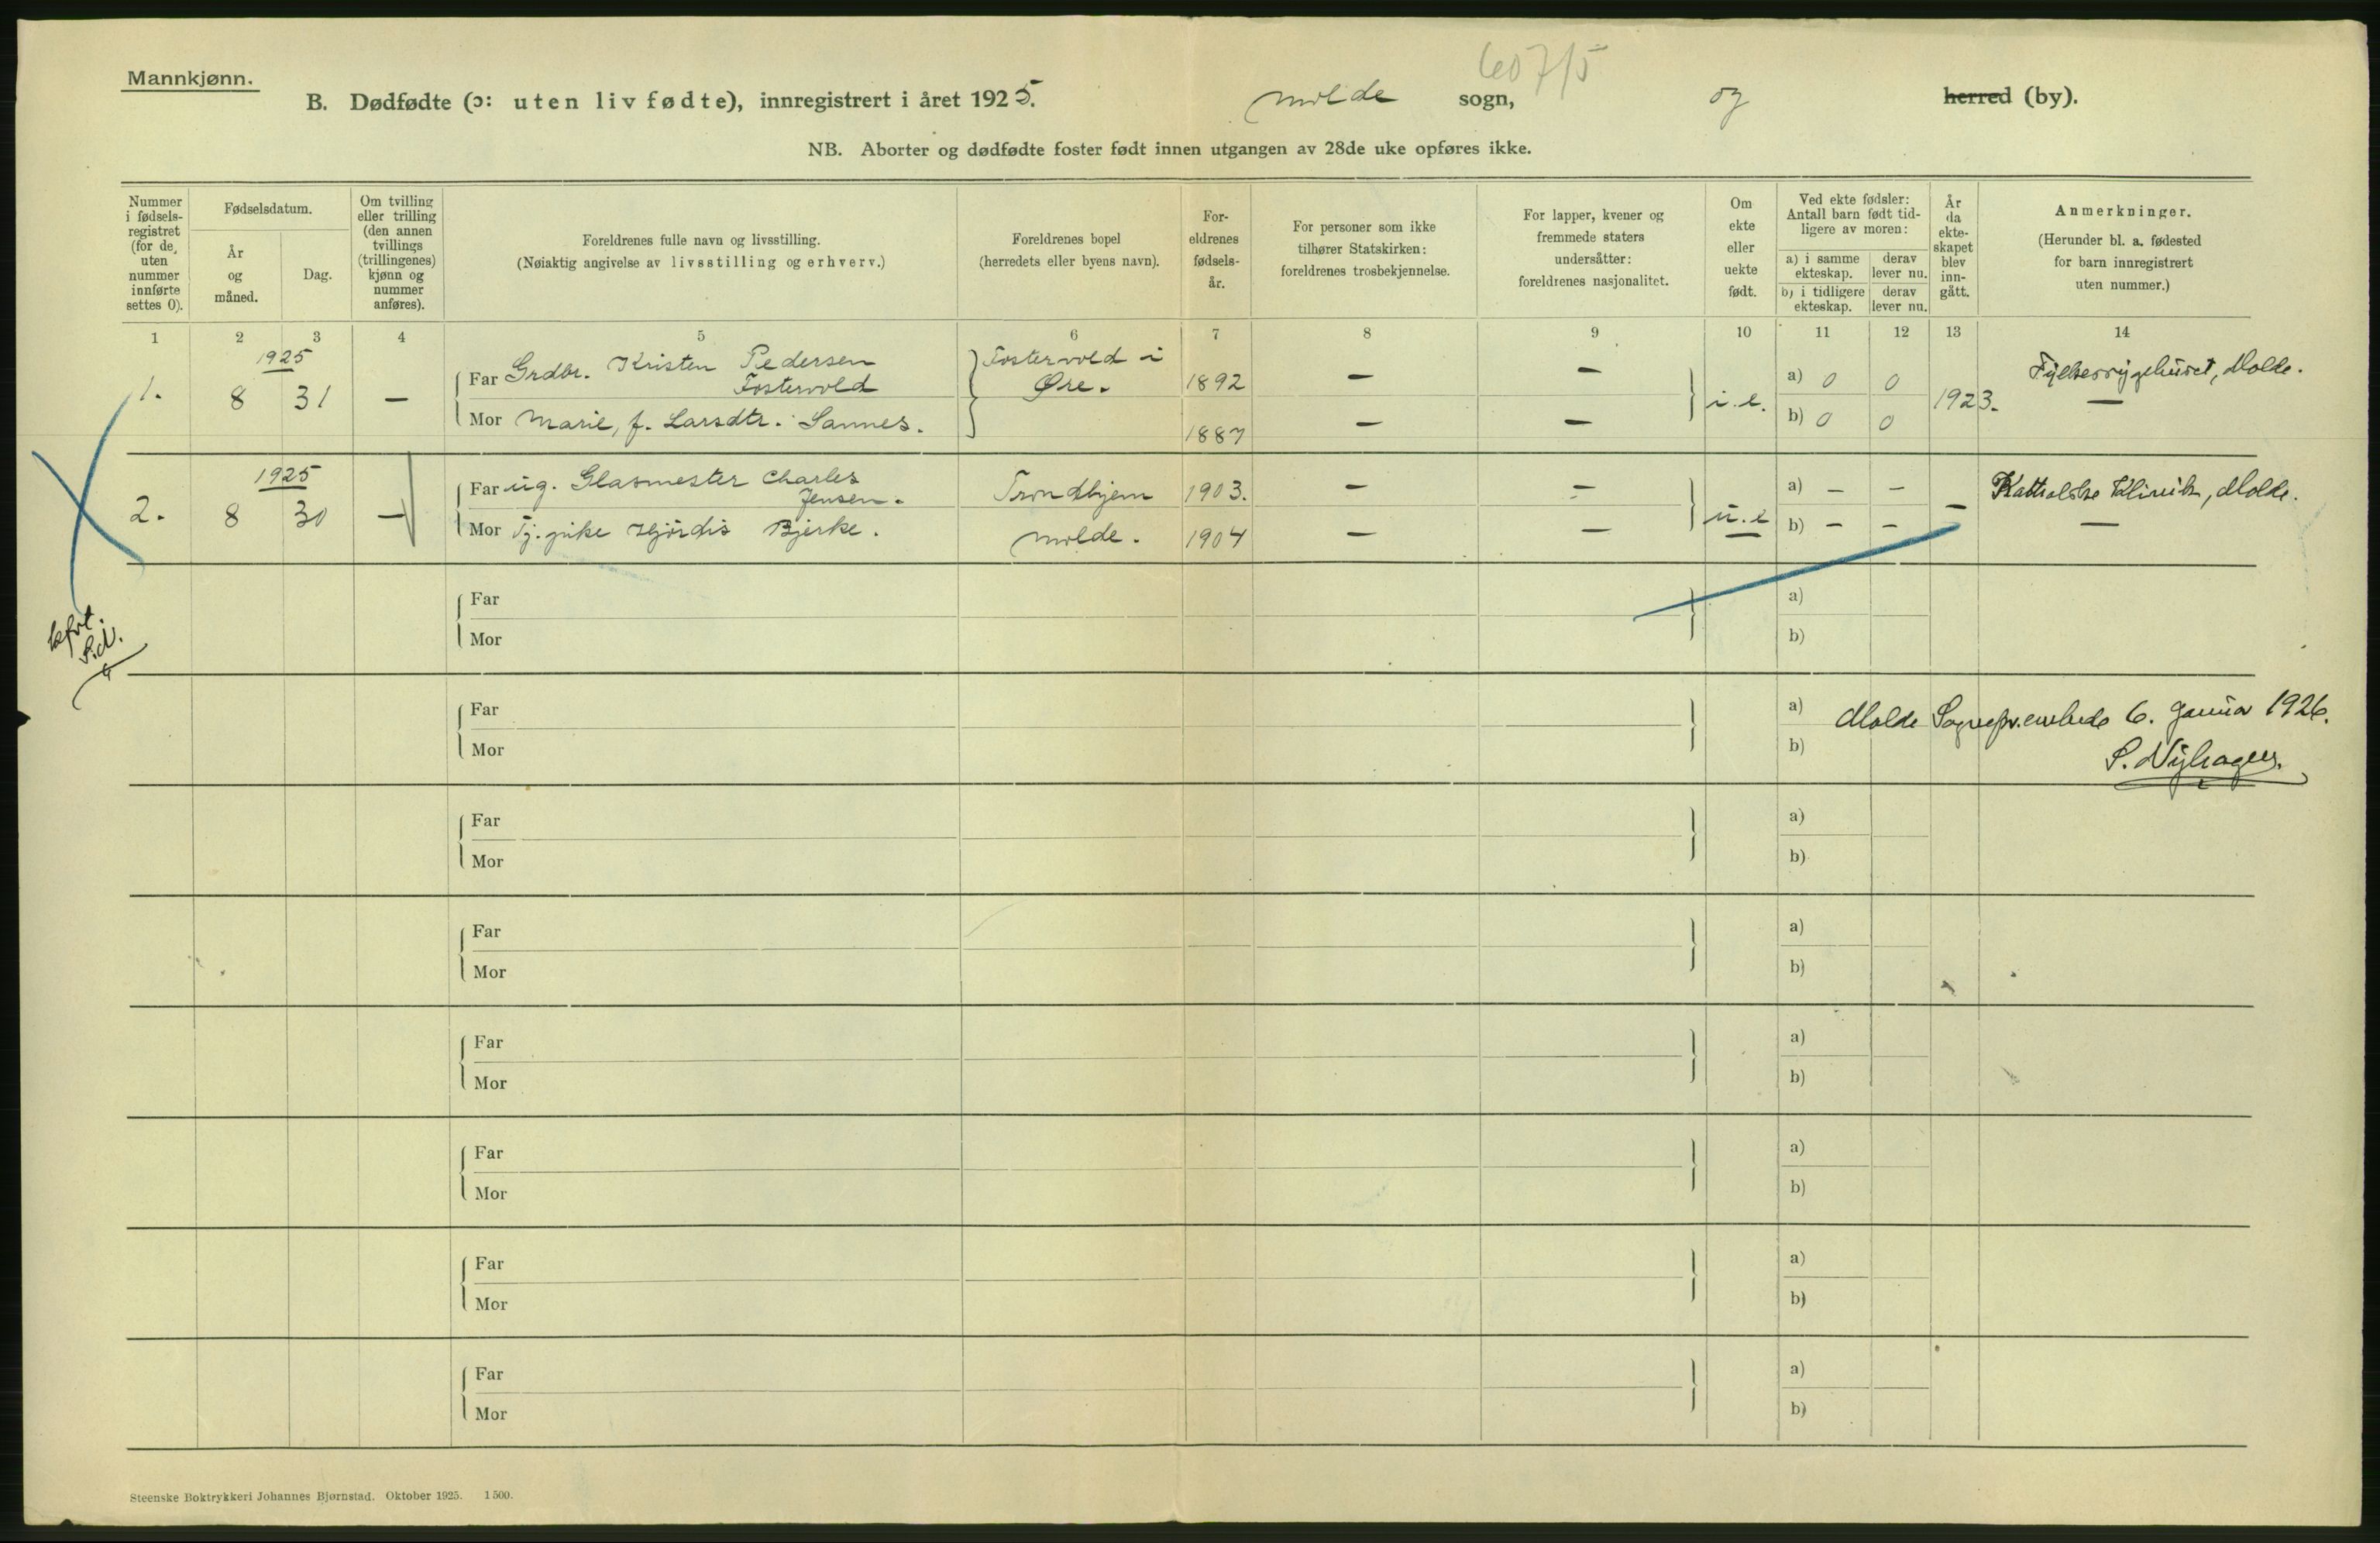 Mannkjønn.
607/5
B. Dødfødte (ɔ: uten liv fødte), innregistrert i året 1925. Molde sogn, og herred (by).
NB. Aborter og dødfødte foster født innen utgangen av 28de uke opføres ikke.
Nummer i fødsels-registret (for de uten nummer innførte settes 0).
Fødselsdatum.
År og måned.
Dag.
Om tvilling eller trilling (den annen tvillings (trillingenes) kjønn og nummer anføres).
Foreldrenes fulle navn og livsstilling.
(Nøiaktig angivelse av livsstilling og erhverv.)
Foreldrenes bopel
(herredets eller byens navn).
For-eldrenes fødsels-år.
For personer som ikke tilhører Statskirken: foreldrenes trosbekjennelse.
For lapper, kvener og fremmede staters undersåtter: foreldrenes nasjonalitet.
Om ekte eller uekte født.
Ved ekte fødsler: Antall barn født tid-ligere av moren:
a) i samme ekteskap. derav lever nu.
b) i tidligere ekteskap. derav lever nu.
År da ekte-skapet blev inn-gått.
Anmerkninger.
(Herunder bl. a. fødested for barn innregistrert uten nummer.)
1 2 3 4 5 6 7 8 9 10 11 12 13 14
1925
1. 8 31 —
Far Grdbr. Kristen Pedersen Fostervold
Fostervold i Øre. 1892 — —
Mor Marie, f. Larsdtr. Sannes. 1887 — —
i.e. a) 0 0
b) 0 0
1923. Fylkessygehuset, Molde.
—
1925
2. 8 30 —
Far ug. Glasmester Charles Jensen.
Trondhjem 1903. — —
Mor Tj.pike Hjördis Bjerke. Molde. 1904 — —
u.e a) — —
b) — —
— Katholske Klinik, Molde.
—
Far a)
Mor b)
kfrt.
S.N.
Far a)
Mor b)
Molde Sognepr.embede 6. januar 1926.
S. Nyhagen.
Far a)
Mor b)
Far a)
Mor b)
Far a)
Mor b)
Far a)
Mor b)
Far a)
Mor b)
Far a)
Mor b)
Steenske Boktrykkeri Johannes Bjørnstad. Oktober 1925. 1500.